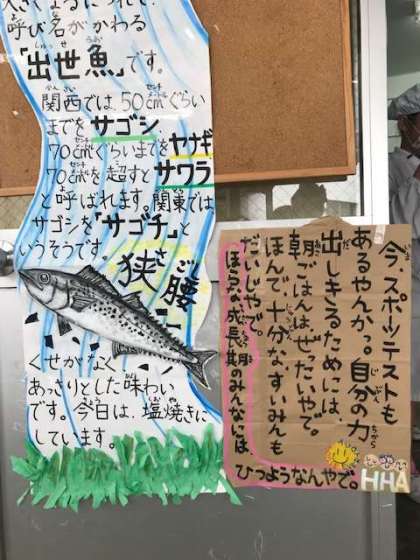 呼び名がかわる
「出世魚」です。
関西では、50cmぐらい
までをサゴシ
70cmぐらいまでをヤナギ
70cmを超すとサワラ
と呼ばれます。関東では
サゴシを「サゴチ」と
いうそうです。
狭腰
くせがなく
あっさりとした味わい
です。今日は、塩焼きに
しています。
今、スポーツテストも
あるやんかっ。自分の力
出しきるためには、
朝ごはんは、ぜったいやで。
ほんで、十分なすいみんも
だいじやで。
成長期のみんなには
ひつようなんやで。
HHA